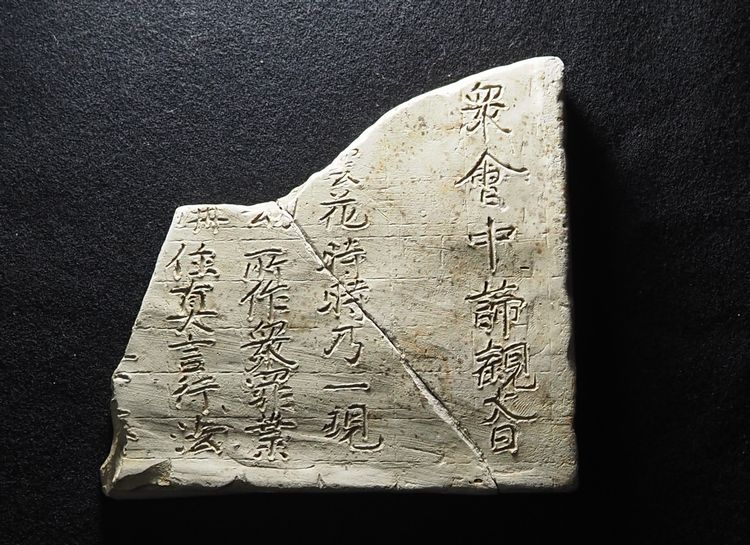 衆會中諦觀
花時時乃一現
所作衆罪業
住真言行法